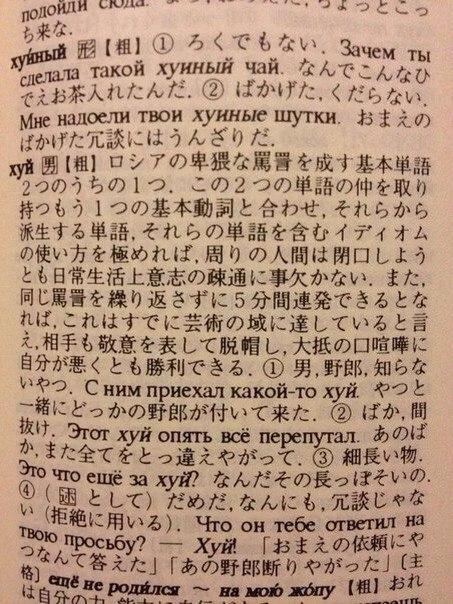 подойди сюда.
ち来な.
хуи́ный 形【粗】① ろくでもない. Зачем ты
сделала такой хуиный чай. なんでこんなひ
でえお茶入れたんだ. ② ばかげた, くだらない.
Мне надоели твои хуиные шутки. おまえの
ばかげた冗談にはうんざりだ.
хуй 男【粗】ロシアの卑猥な罵詈を成す基本単語
2つのうちの1つ. この2つの単語の仲を取り
持つもう1つの基本動詞と合わせ, それらから
派生する単語, それらの単語を含むイディオム
の使い方を極めれば, 周りの人間は閉口しよう
とも日常生活上意志の疎通に事欠かない. また,
同じ罵詈を繰り返さずに5分間連発できるとな
れば, これはすでに芸術の域に達していると言
え, 相手も敬意を表して脱帽し, 大抵の口喧嘩に
自分が悪くとも勝利できる. ① 男, 野郎, 知らな
いやつ. С ним приехал какой-то хуй. やつと
一緒にどっかの野郎が付いて来た. ② ばか, 間
抜け. Этот хуй опять всё перепутал. あのば
か, また全てをとっ違えやがって. ③ 細長い物.
Это что ещё за хуй? なんだその長っぽそいの.
④ (述 として) だめだ, なんにも, 冗談じゃな
い (拒絶に用いる). Что он тебе ответил на
твою просьбу? — Хуй! 「おまえの依頼にや
つなんて答えた」「あの野郎断りやがった」〔主
格〕 ещё не роди́лся ~ на мою жо́пу【粗】おれ
は自分の力,